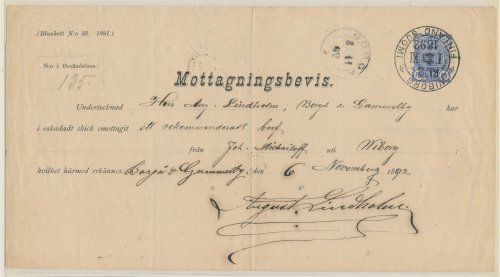 (Blankett N:o 33. 1881.)
WIBORG
FINLAND SUOMI
1892
BORGÅ
N:o å försändelsen:
135.
Mottagningsbevis.
Undertecknad Herr Aug. Lindholm, Borgå & Gammelby har
i oskadadt skick emottagit ett rekommenderadt bref
från Joh. Michailoff uti Wiborg
hvilket härmed erkännes. Borgå & Gammelby den 6 November 1892.
August Lindholm